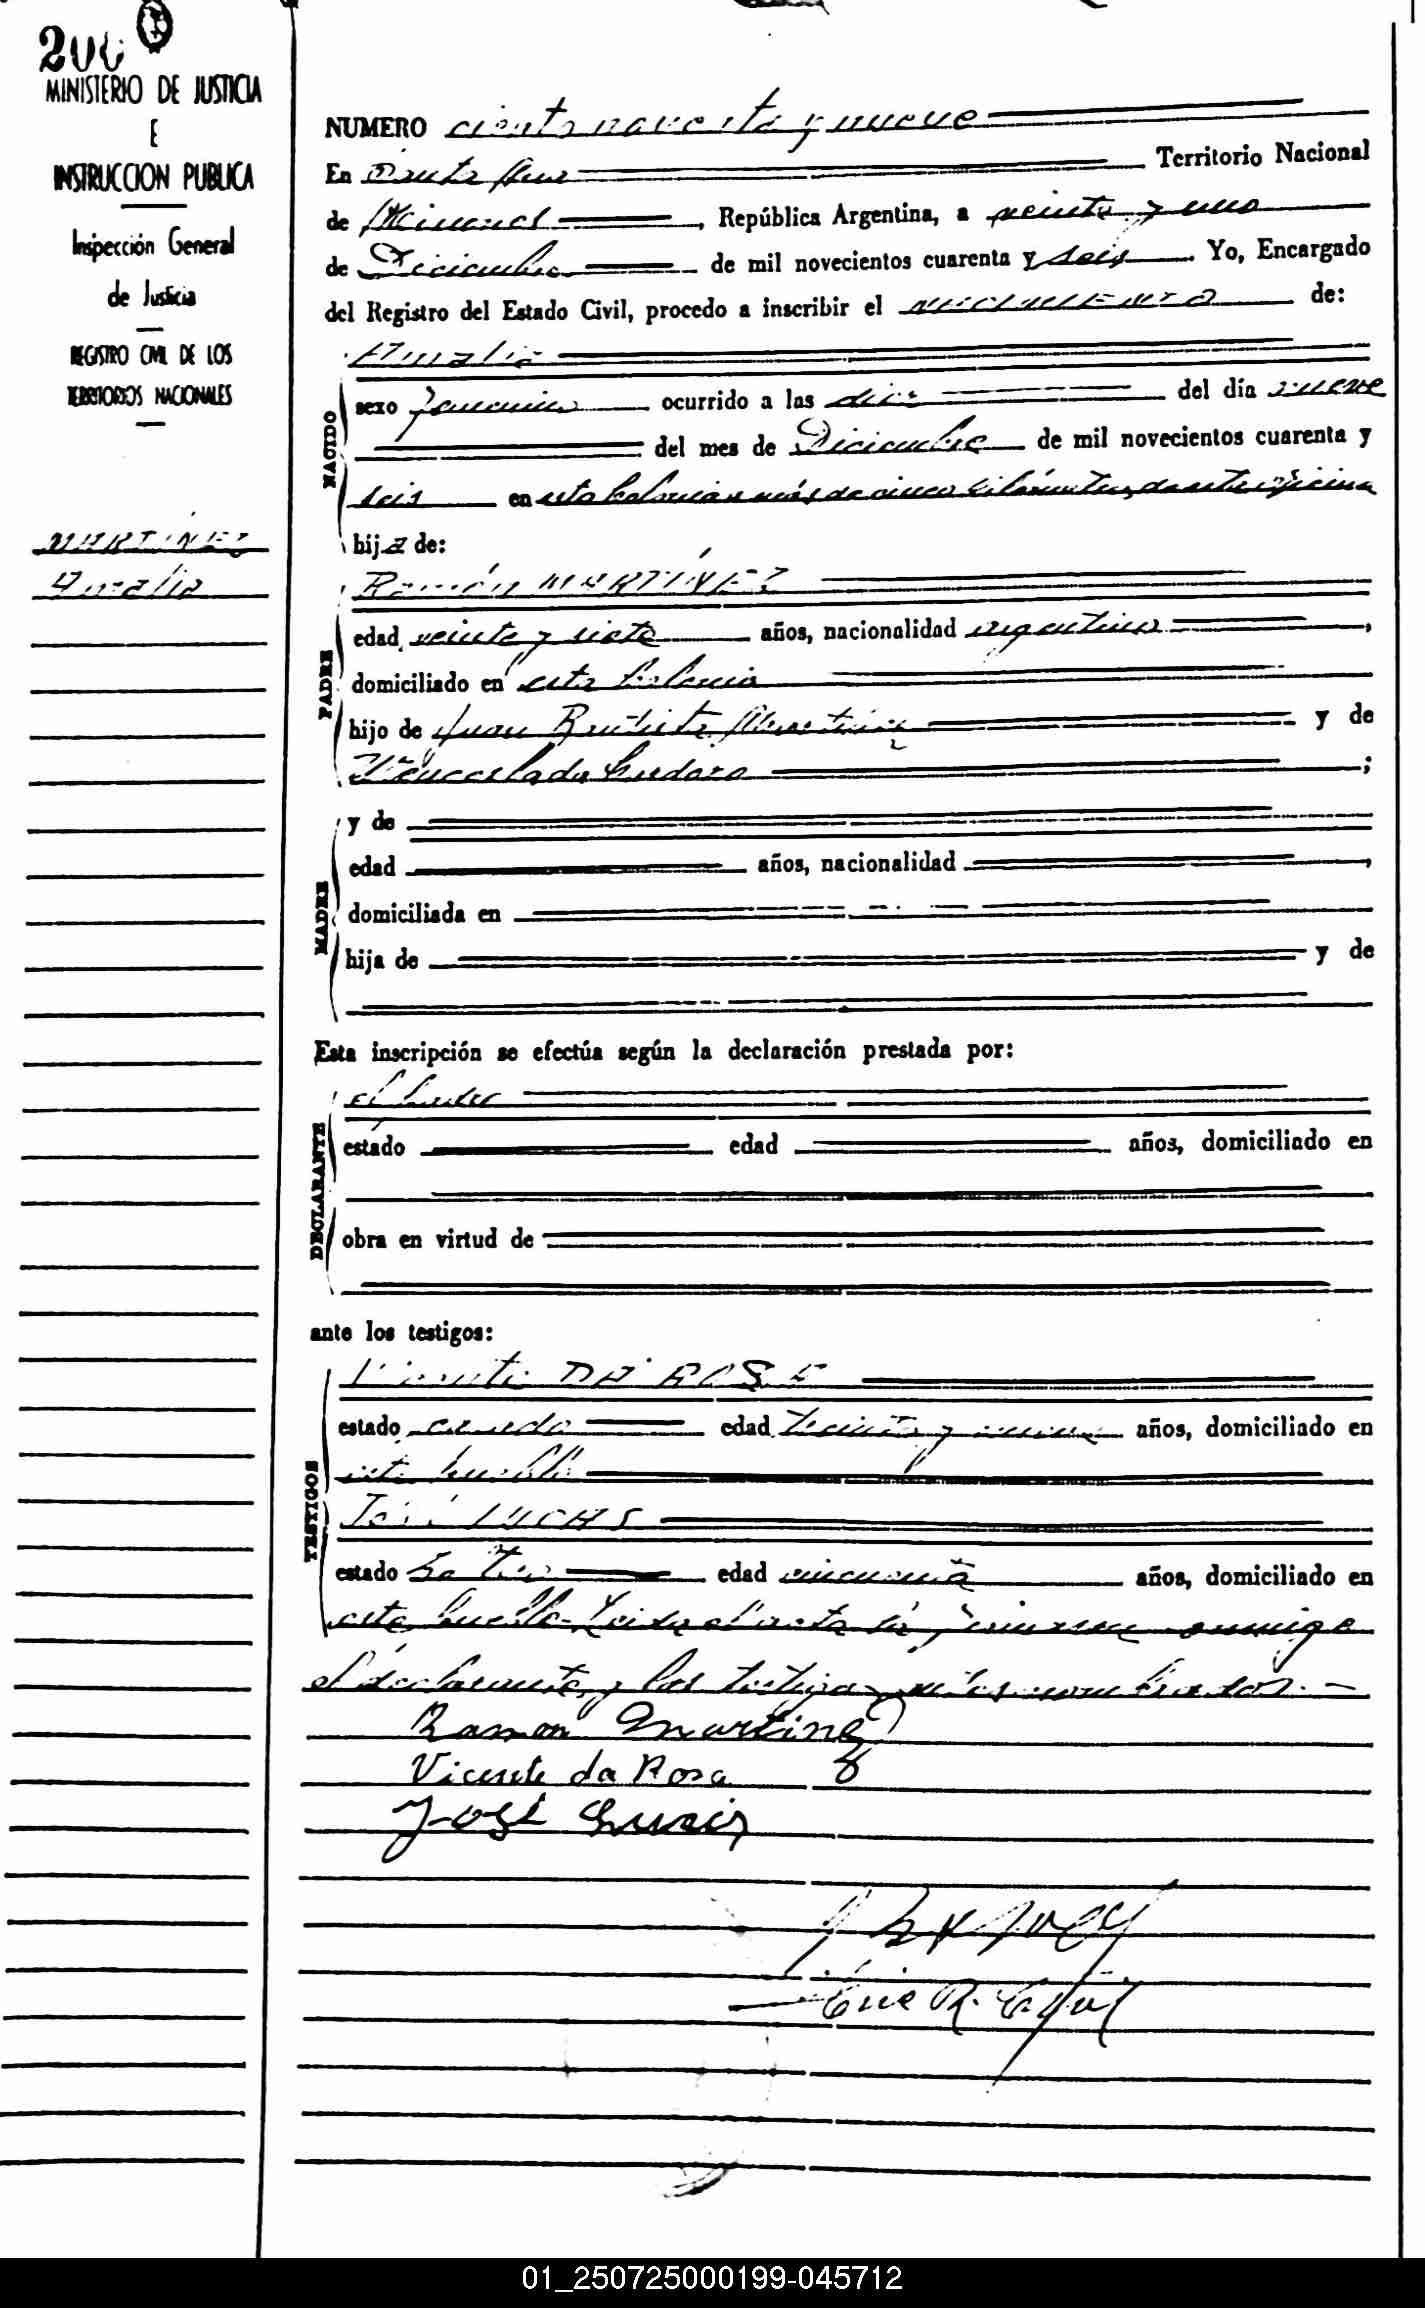 200
MINISTERIO DE JUSTICIA
E
INSTRUCCION PUBLICA
Inspección General
de Justicia
REGISTRO CIVIL DE LOS
TERRITORIOS NACIONALES
MARTINEZ
Amalia
NUMERO ciento noventa y nueve
En Santa Ana Territorio Nacional
de Misiones, República Argentina, a veinte y uno
de Diciembre de mil novecientos cuarenta y seis Yo, Encargado
del Registro del Estado Civil, procedo a inscribir el nacimiento de:
NACIDO
Amalia
sexo femenino ocurrido a las diez del día nueve
del mes de Diciembre de mil novecientos cuarenta y
seis en esta Colonia a más de cinco kilómetros de esta oficina
hija de:
PADRE
Ramón MARTÍNEZ
edad veinte y siete años, nacionalidad argentino,
domiciliado en esta Colonia
hijo de Juan Bautista Martinez y de
Wenceslada Cardozo;
MADRE
y de
edad años, nacionalidad ,
domiciliada en
hija de y de
Esta inscripción se efectúa según la declaración prestada por:
DECLARANTE
el padre
estado edad años, domiciliado en
obra en virtud de
ante los testigos:
TESTIGOS
Vicente DA ROSA
estado casado edad treinta y nueve años, domiciliado en
este pueblo
José LUCAS
estado soltero edad cincuenta años, domiciliado en
este pueblo. Leída el acta la firman conmigo
el declarante y los testigos nombrados.-
Ramon Martinez
Vicente da Rosa
José
01_250725000199-045712